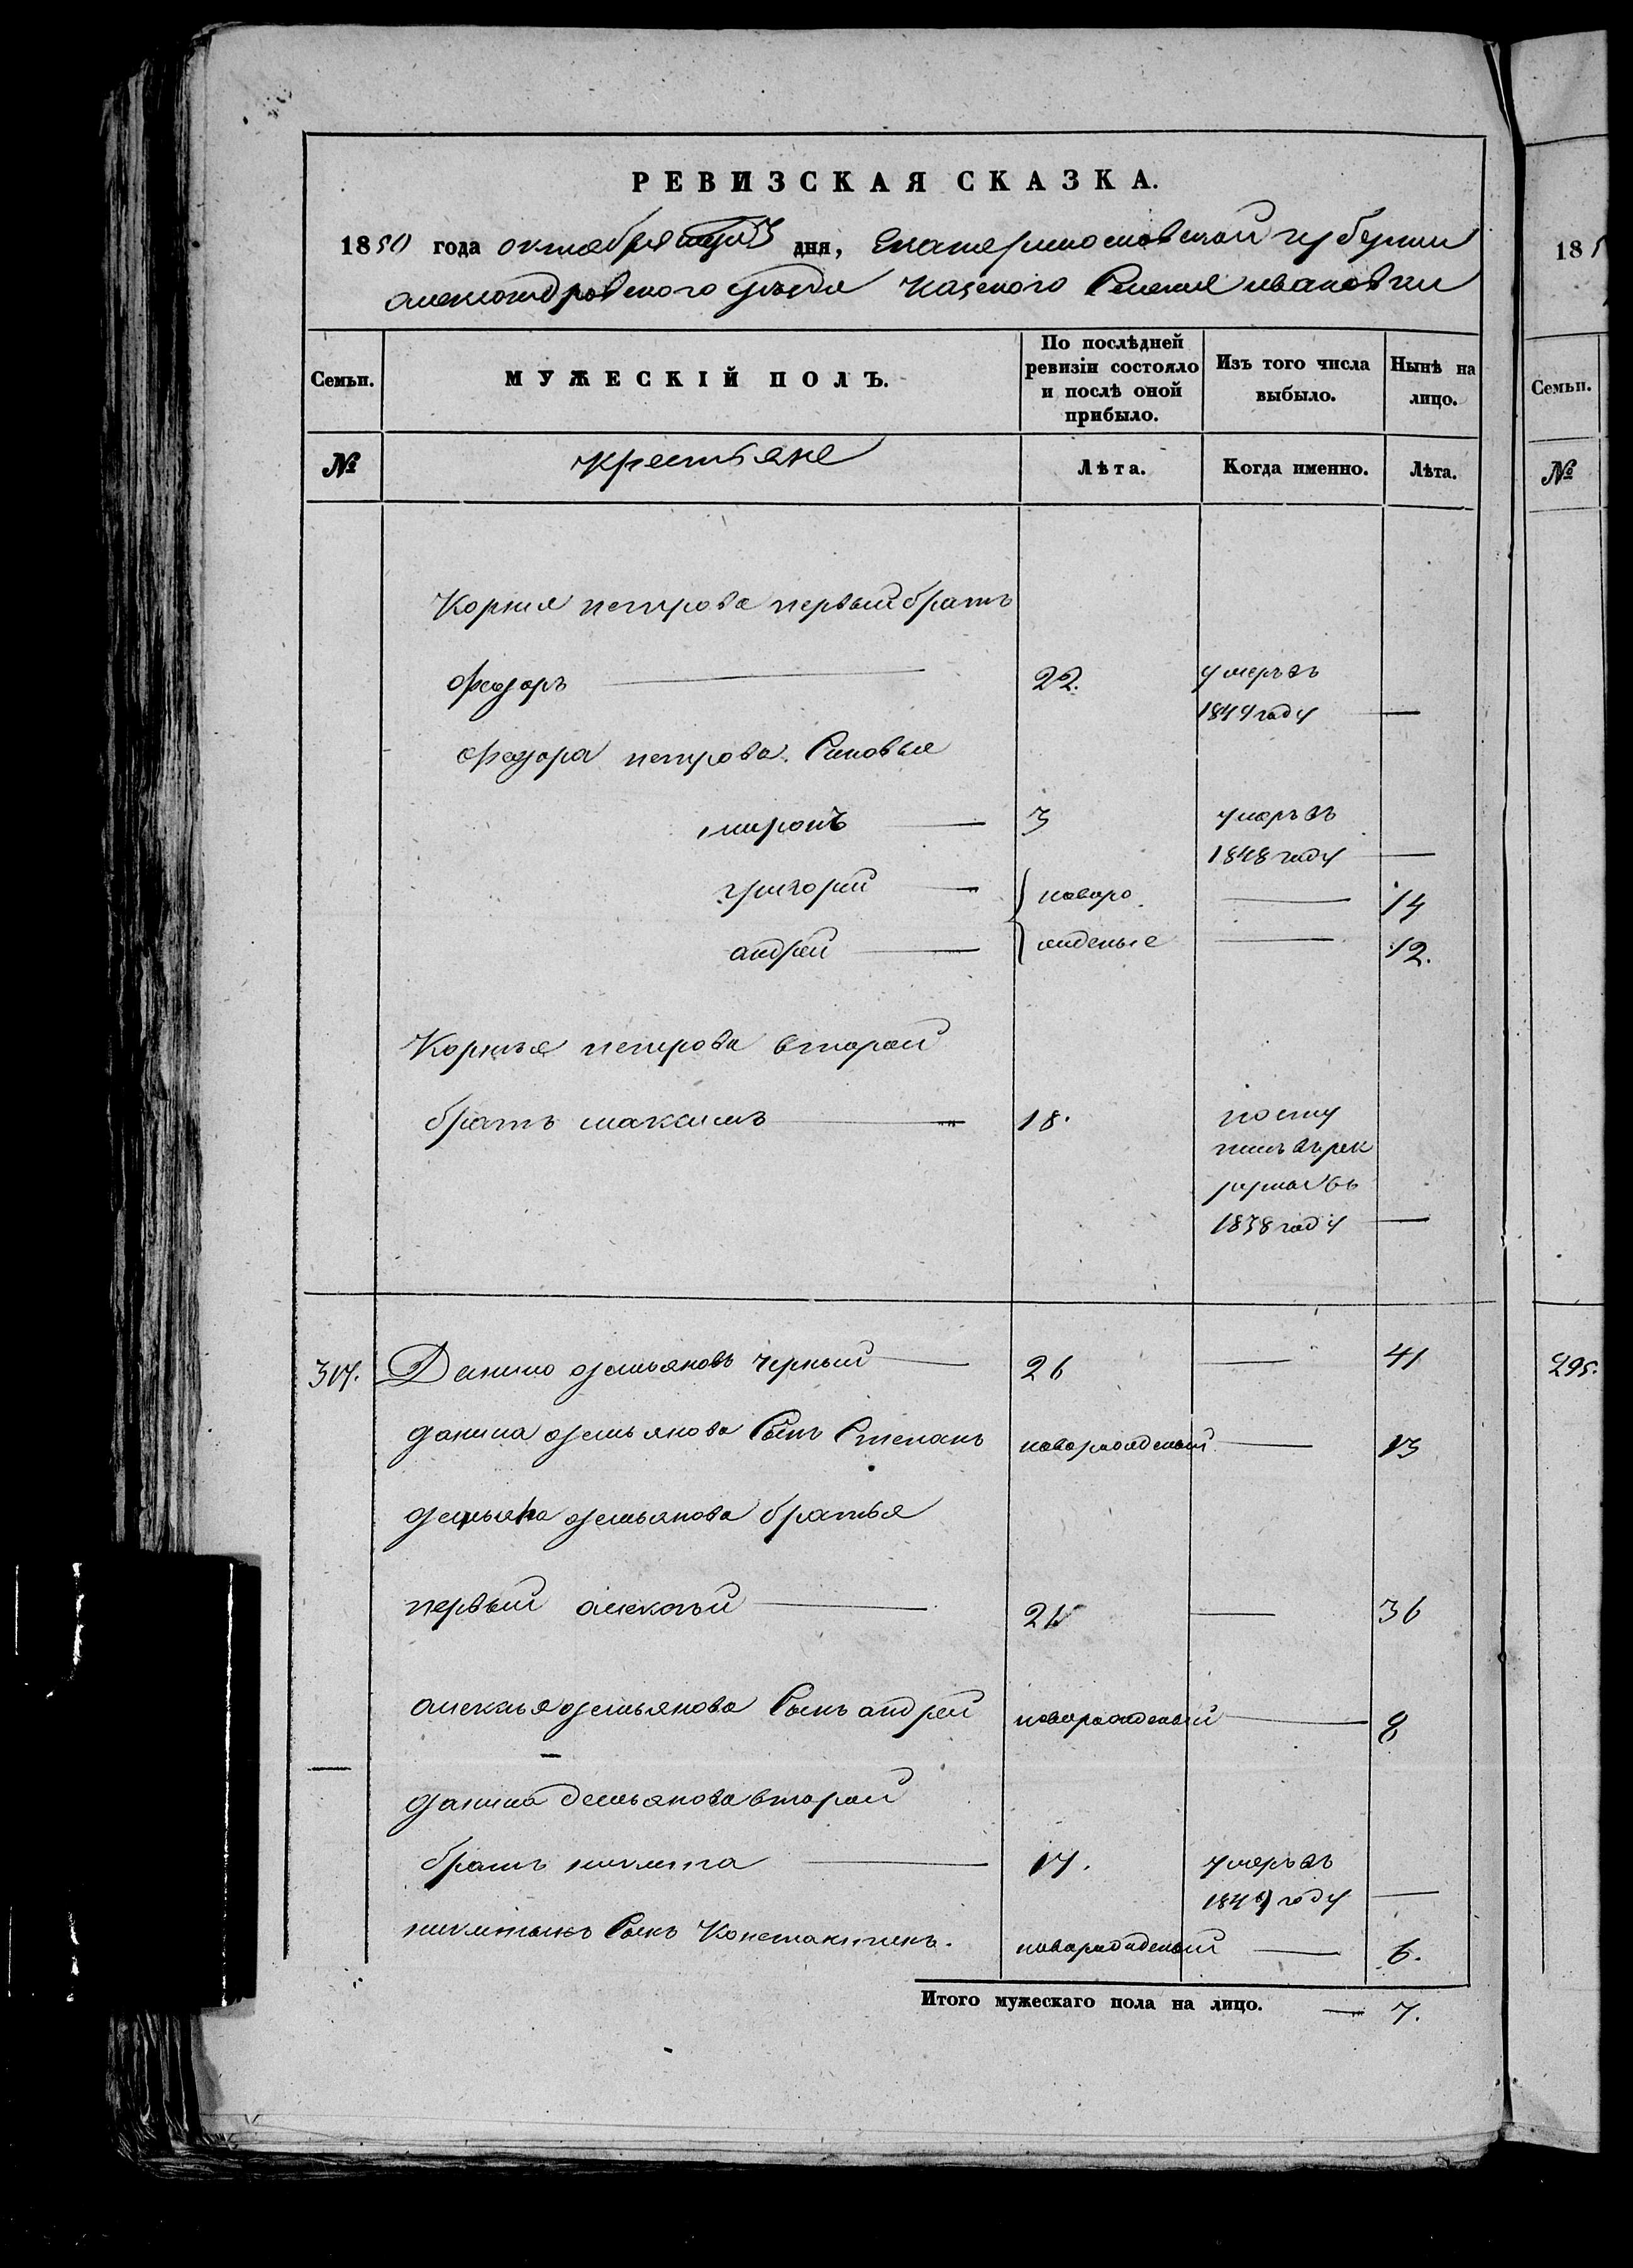 РЕВИЗСКАЯ СКАЗКА.
1850 года октября дня, Екатеринославской губернии
Александровского уезда казеного Селения ивановки
Семьи.
МУЖЕСКІЙ ПОЛЪ.
По послѣдней ревизіи состояло и послѣ оной прибыло.
Изъ того числа выбыло.
Нынѣ на лицо.
№
крестьяне
Лѣта.
Когда именно.
Лѣта.
Корния петрова первый братъ
Федоръ 22. умеръ въ
1849 году —
Федора петрова Синовья
миронъ — 3 умеръ въ
1848 году —
григорий — новоро — 14
андрей — жденые — 12.
Корнья петрова второй
братъ максимъ — 18. посту
пилъ въ рек
руты въ
1838 году —
317. Данило демьяновъ черный — 26 — 41
данила демьянова Сынъ Степанъ новорожденый — 13
демьяна демьянова братья
первый алексъй — 21 — 36
алексья демьянова Сынъ андрей новорожденый — 8
данила демьянова второй
братъ никита — 17. умеръ въ
1849 году —
никитынъ Сынъ Константинъ. новорожденый — 6.
Итого мужескаго пола на лицо. — 7.
185
Семьи.
№
295.